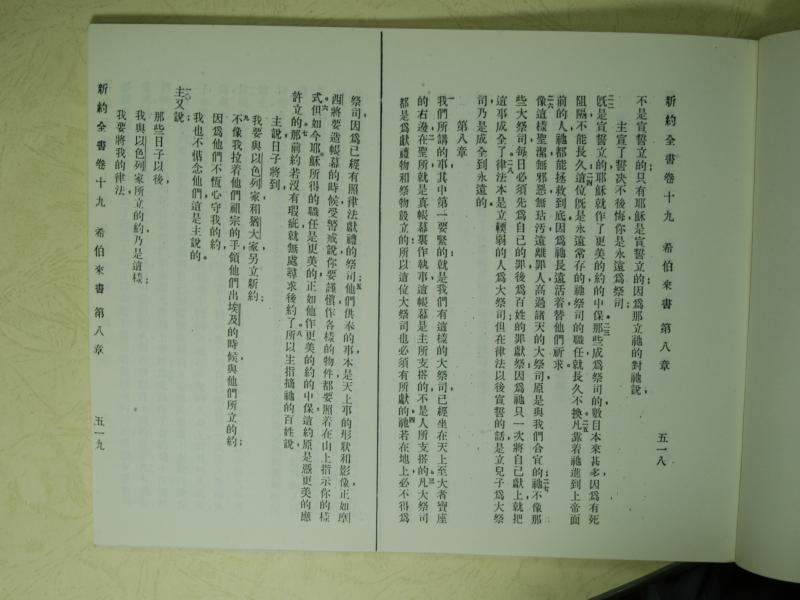 新約全書卷十九　希伯來書　第八章　五一八
不是宣誓立的只有耶穌是宣誓立的因爲那立祂的對祂說、
主宣了誓决不後悔你是永遠爲祭司、
二二既是宣誓立的耶穌就作了更美的約的中保二三那些成爲祭司的數目本來甚多因爲有死
阻隔不能長久二四這位既是永遠常存的祂祭司的職任就長久不換二五凡靠着祂進到上帝面
前的人祂都能拯救到底因爲祂長遠活着替他們祈求。
二六像這樣聖潔無邪惡無玷污遠離罪人高過諸天的大祭司原是與我們合宜的二七祂不像那
些大祭司每日必須先爲自己的罪後爲百姓的罪獻祭因爲祂只一次將自己獻上就把
這事成全了二八律法本是立輭弱的人爲大祭司但在律法以後宣誓的話是立兒子爲大祭
司乃是成全到永遠的。
第八章
一我們所講的事其中第一要緊的就是我們有這樣的大祭司已經坐在天上至大者寶座
的右邊二在聖所就是真帳幕裏作執事這帳幕是主所支搭的不是人所支搭的三凡大祭司
都是爲獻禮物和祭物設立的所以這位大祭司也必須有所獻的四祂若在地上必不得爲
祭司因爲已經有照律法獻禮的祭司五他們供奉的事本是天上事的形狀和影像正如摩
西將要造帳幕的時候受警戒說你要謹愼作各樣的物件都要照着在山上指示你的樣
式六但如今耶穌所得的職任是更美的正如他作更美的約的中保這約原是憑更美的應
許立的七那前約若沒有瑕疵就無處尋求後約了八所以主指摘祂的百姓說、
主說日子將到、
我要與以色列家和猶大家另立新約、
九不像我拉着他們祖宗的手領他們出埃及的時候與他們所立的約、
因爲他們不恆心守我的約、
我也不惦念他們這是主說的。
一〇主又說、
那些日子以後、
我與以色列家所立的約乃是這樣、
我要將我的律法、
新約全書卷十九　希伯來書　第八章　五一九